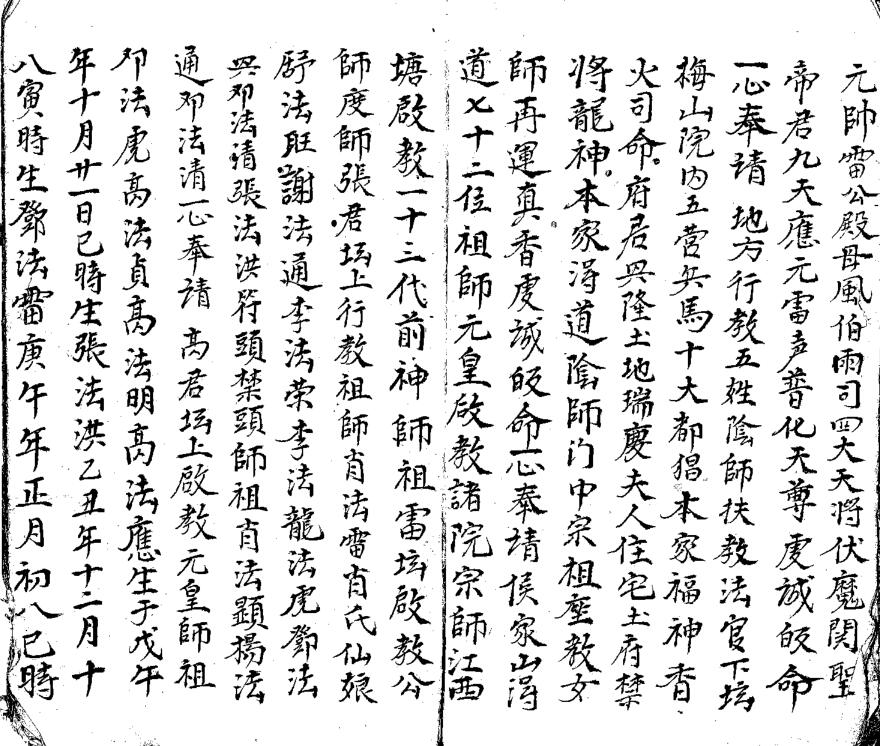 元帥雷公殿母風伯雨司四大天将伏魔関聖
帝君九天應元雷声普化天尊虔誠皈命
一心奉請地方行教五姓陰師扶教法官下坛
梅山院内五营兵馬十大都猖本家福神香
火司命府君興隆土地瑞慶夫人住宅土府禁
将龍神本家淂道陰師门中宗祖座教女
師再運真香虔誠皈命一心奉请侯家山淂
道七十二位祖師元皇啟教諸院宗師江西
塘啟教一十三代前神師祖雷坛啟教公
師度師張君坛上行教祖師肖法雷肖氏仙娘
舒法旺謝法通李法荣李法龍法虎鄧法
興邓法清張法洪符頭禁頭師祖肖法顕楊法
通邓法清一心奉請高君坛上啟教元皇師祖
邓法虎高法貞高法明高法應生于戊午
年十月廿一日巳時生張法洪乙丑年十二月十
八寅時生鄧法雷庚午年正月初八巳時